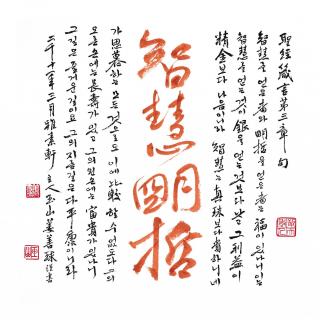 聖經箴言第三章句
智慧를 얻은者와 明哲을 얻은者는 福이 있나니 이는
智慧를 얻는 것이 銀을 얻는 것보다 낫고 그 利益이
精金보다 나음이니라 智慧는 真珠보다 貴하니 네
智慧明哲
가 思慕하는 모든 것으로도 이에 比較할 수 없도다 그의
오른손에는 長壽가 있고 그의 왼손에는 富貴가 있나니
그 길은 즐거운 길이요 그의 지름길은 다 平康이니라
二千十 年二月 雅素軒 主人 玉山 姜善